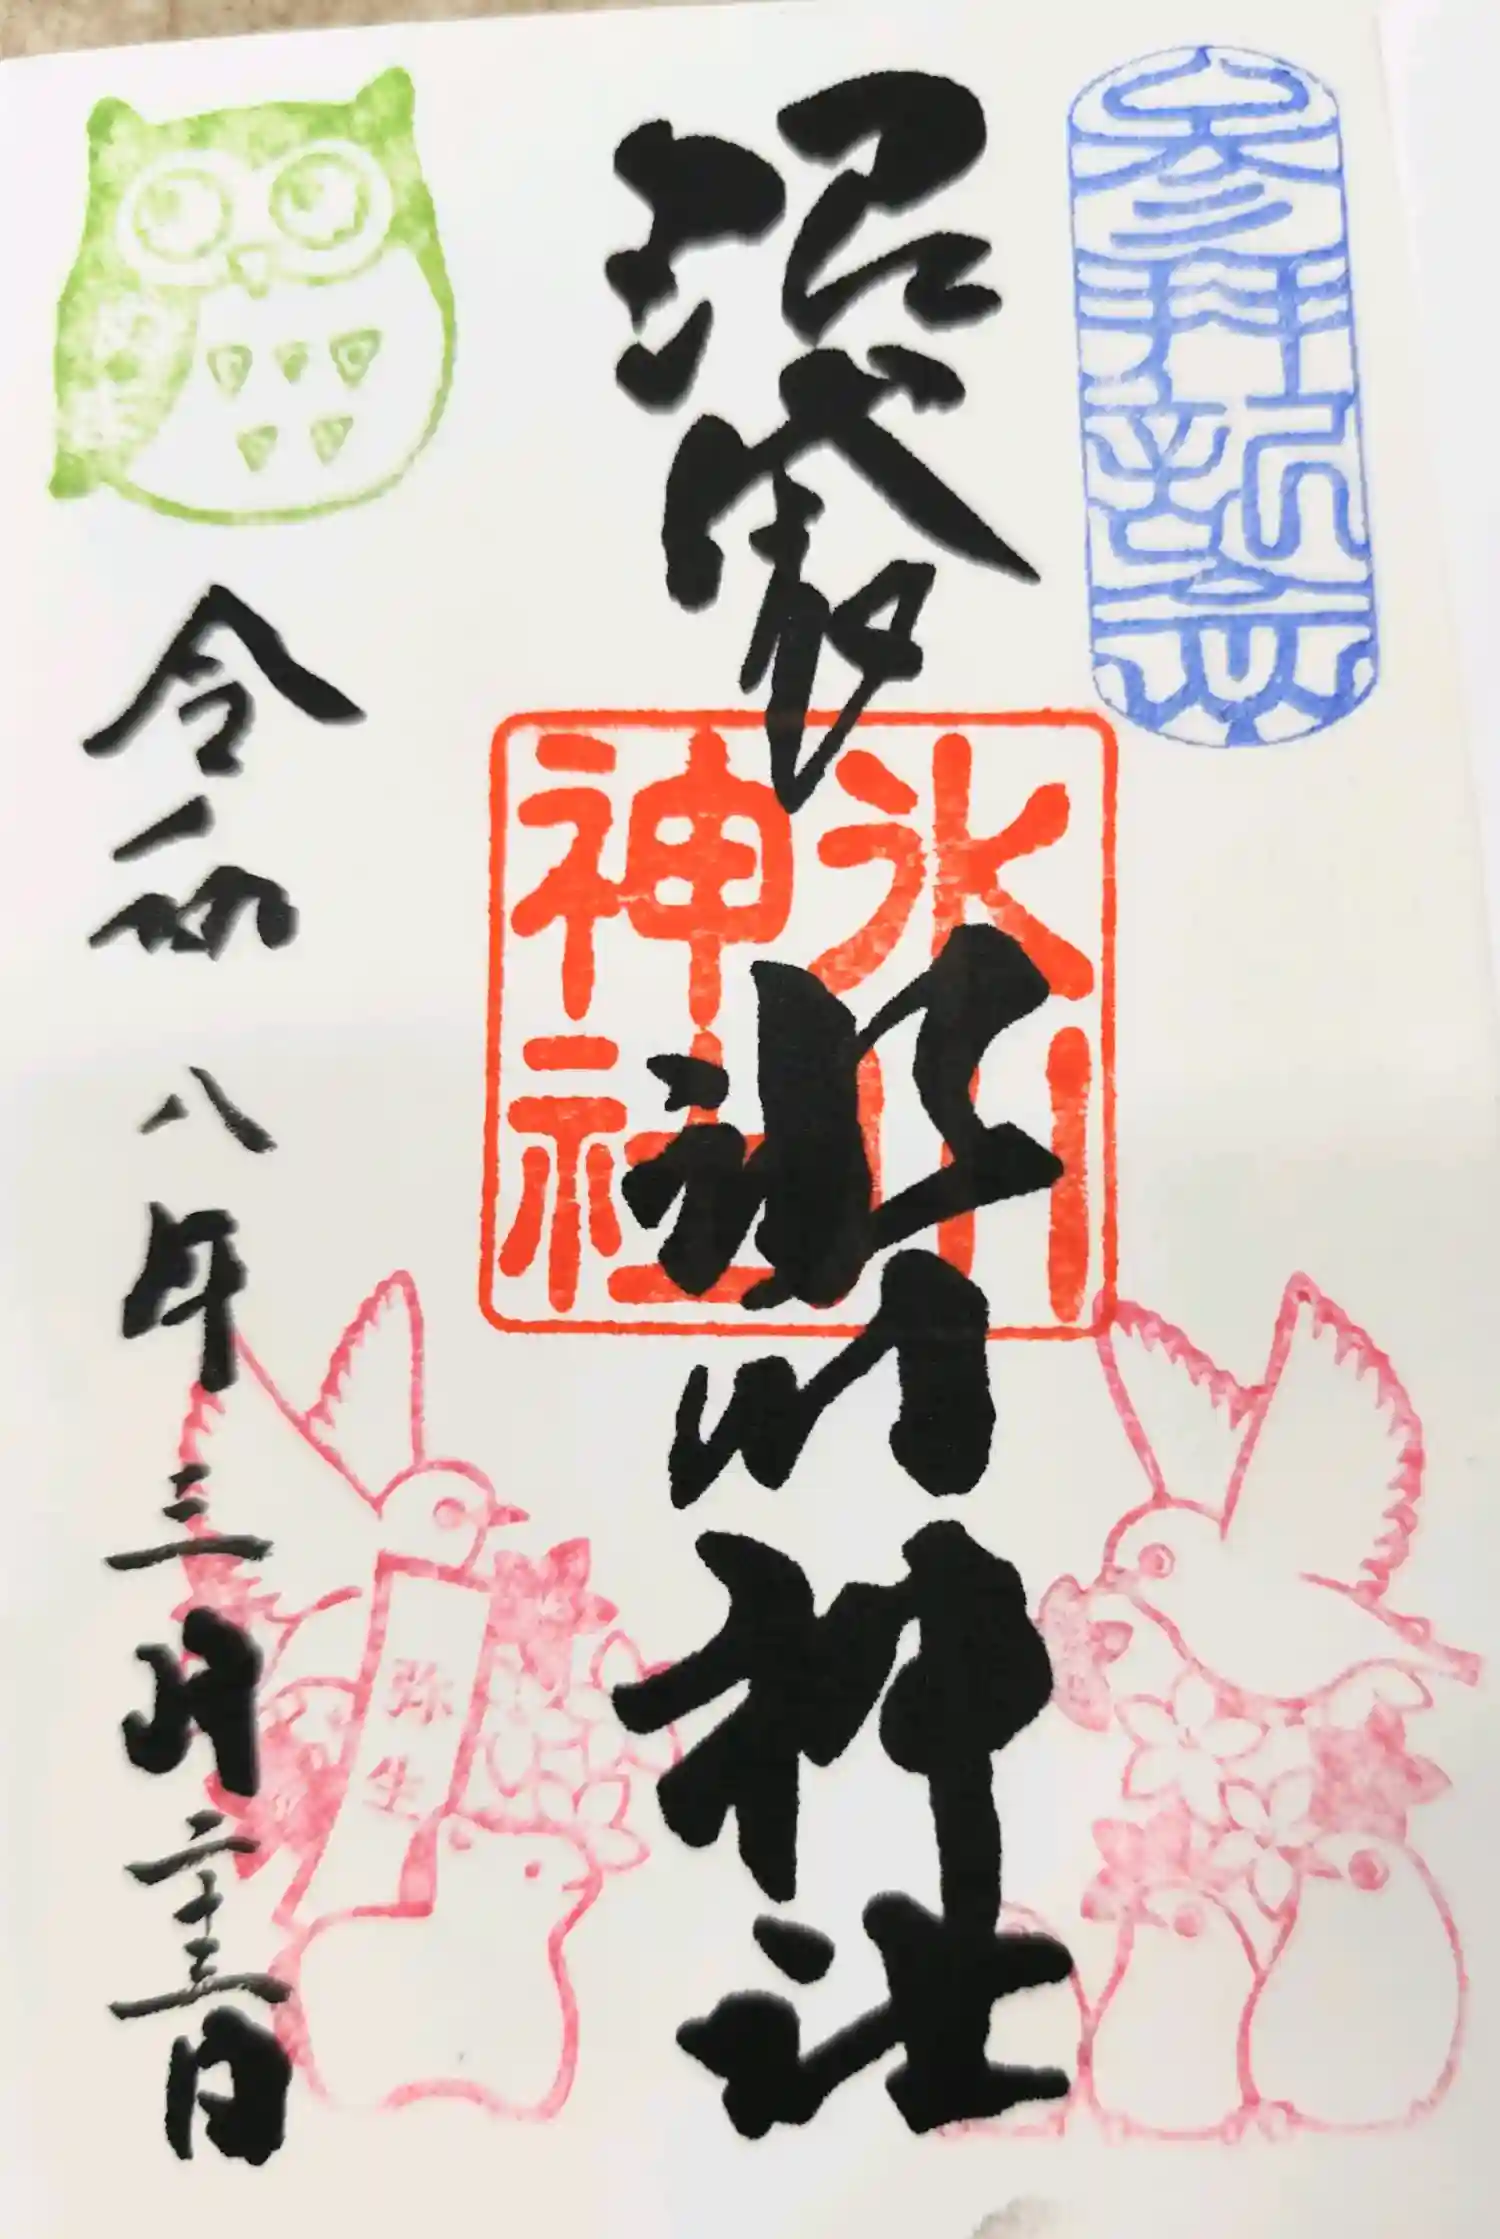 参拝記念
沼袋
氷川神社
氷川神社
令和八年三月二十三日
弥生